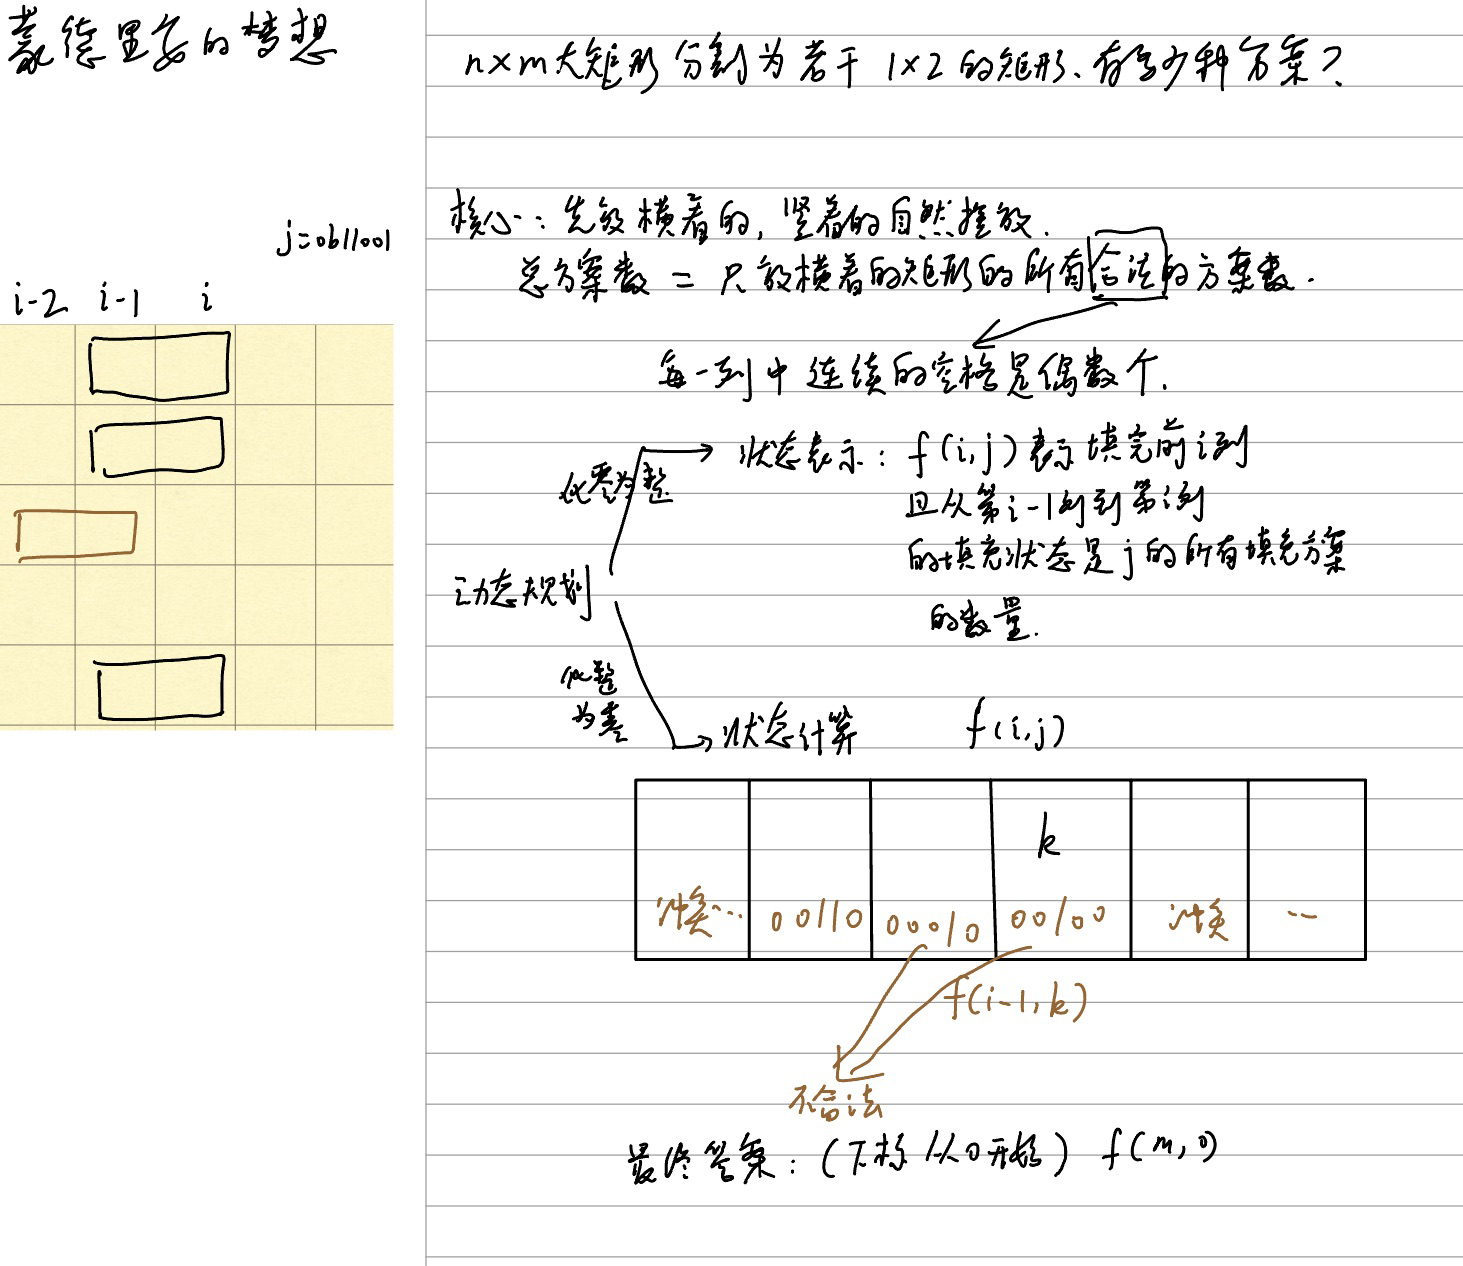 蒙德里安的梦想
n×m大矩形分割为若干 1×2 的矩形、有多少种方案?
核心: 先放横着的, 竖着的自然摆放.
总方案数 = 只放横着的矩形的所有合法的方案数.
每一列中连续的空格是偶数个.
j=0b11001
i-2 i-1 i
化零为整
状态表示: f(i,j) 表示填完前i列
且从第i-1列到第i列
的填充状态是j的所有填充方案
的数量.
动态规划
化整
为零
状态计算 f(i,j)
k
冲突… 00110 00010 00100 冲突 …
f(i-1,k)
不合法
最终答案: (下标从0开始) f(m,0)